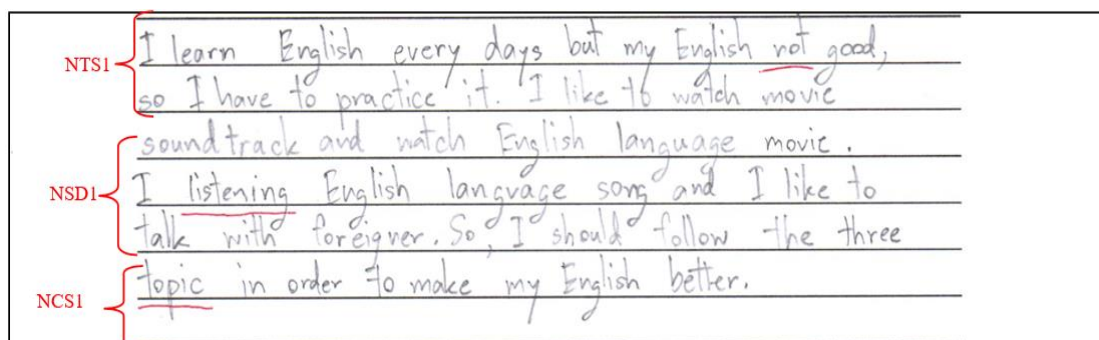 NTS1
I learn English every days but my English not good,
so I have to practice it. I like to watch movie
soundtrack and watch English language movie.
NSD1
I listening English language song and I like to
talk with foreigner. So, I should follow the three
NCS1
topic in order to make my English better.